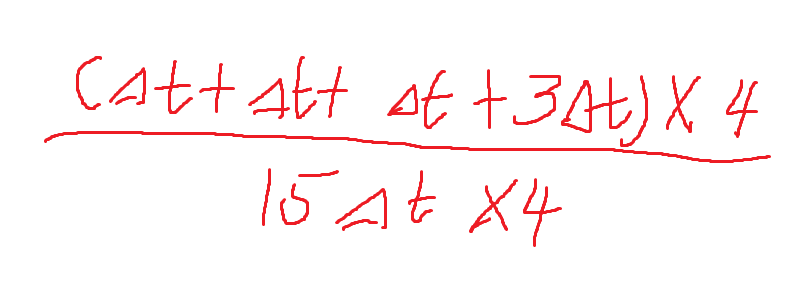 (Δt+Δt+ Δt+3Δt)×4
15Δt×4